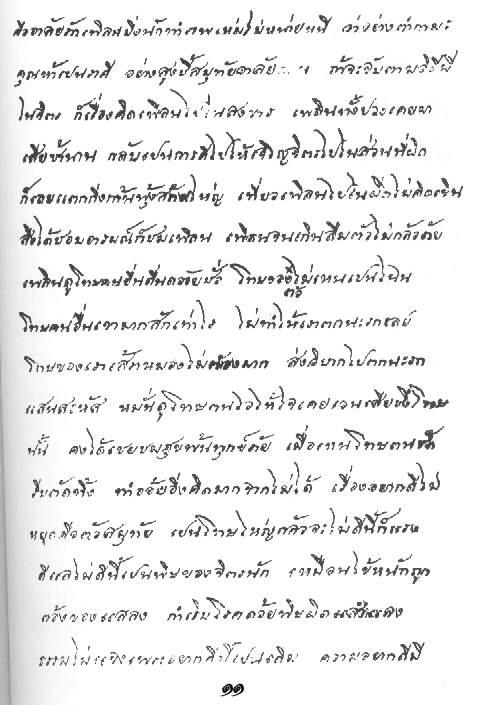 คืออาลัยอาเพลินปังนักทำภพใหม่ไม่หน่ายหนี ว่าอย่างต่ำกามะ
คุณห้าเปนราคี อย่างสูงชี้สมุทัยอาลัย ถ้าจะจับตามวิธีมี
ในจิตร ก็เรื่องคิดเพลินไปในสังขาร เพลินทั้งปวงเคยมา
เสียช้านาน กลับเปนการดีไปให้เจริญจิตรไปในส่วนที่ผิด
ก็เลยแตกกิ่งก้านฟุ้งส้านใหญ่ เที่ยวเพลินไปในผิดไม่คิดเขิน
สิ่งใดชอบอารมณ์ก็ชมเพลิน เพลินจนเกินลืมตัวไม่กลัวภัย
เพลินดูโทษคนอื่นดื่นด้วยชั่ว โทษของตัวไม่เหนเปนไฉน
โทษคนอื่นเขามากสักเท่าไร ไม่ทำให้เราตกนะรกเลย
โทษของเราเส้าหมองไม่ต้องมาก ส่งวิบากไปตกนะรก
แสนสะหัส หมั่นดูโทษตนไว้ให้ใจเคยเวนเสียซึ่งโทษ
นั้น คงได้เชยชมสุขพ้นทุกข์ภัย เมื่อเหนโทษตนชัด
รีบตัดทิ้ง ทำอ้อยอิ่งคิดมากจากไม่ได้ เรื่องอยากดีไม่
หยุดคือตัวสมุทัย เปนโทษใหญ่กลัวจะไม่ดีนี้ก็แรง
ดีแลไม่ดีนี้เปนพิษของจิตรนัก เหมือนไข้หนักถูก
ต้องของแสลง กำเริบโรคด้วยพิษผิดสำแลง
ธรรมไม่แจ้งเพราะอยากดีนี้เปนเดิม ความอยากดีมี
๑๑